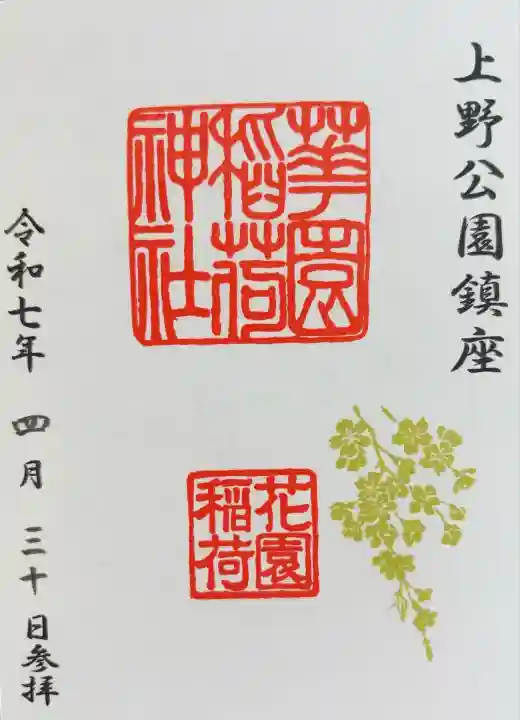 上野公園鎮座
華園
稲荷
神社
花園
稲荷
令和七年 四月 三十日参拝